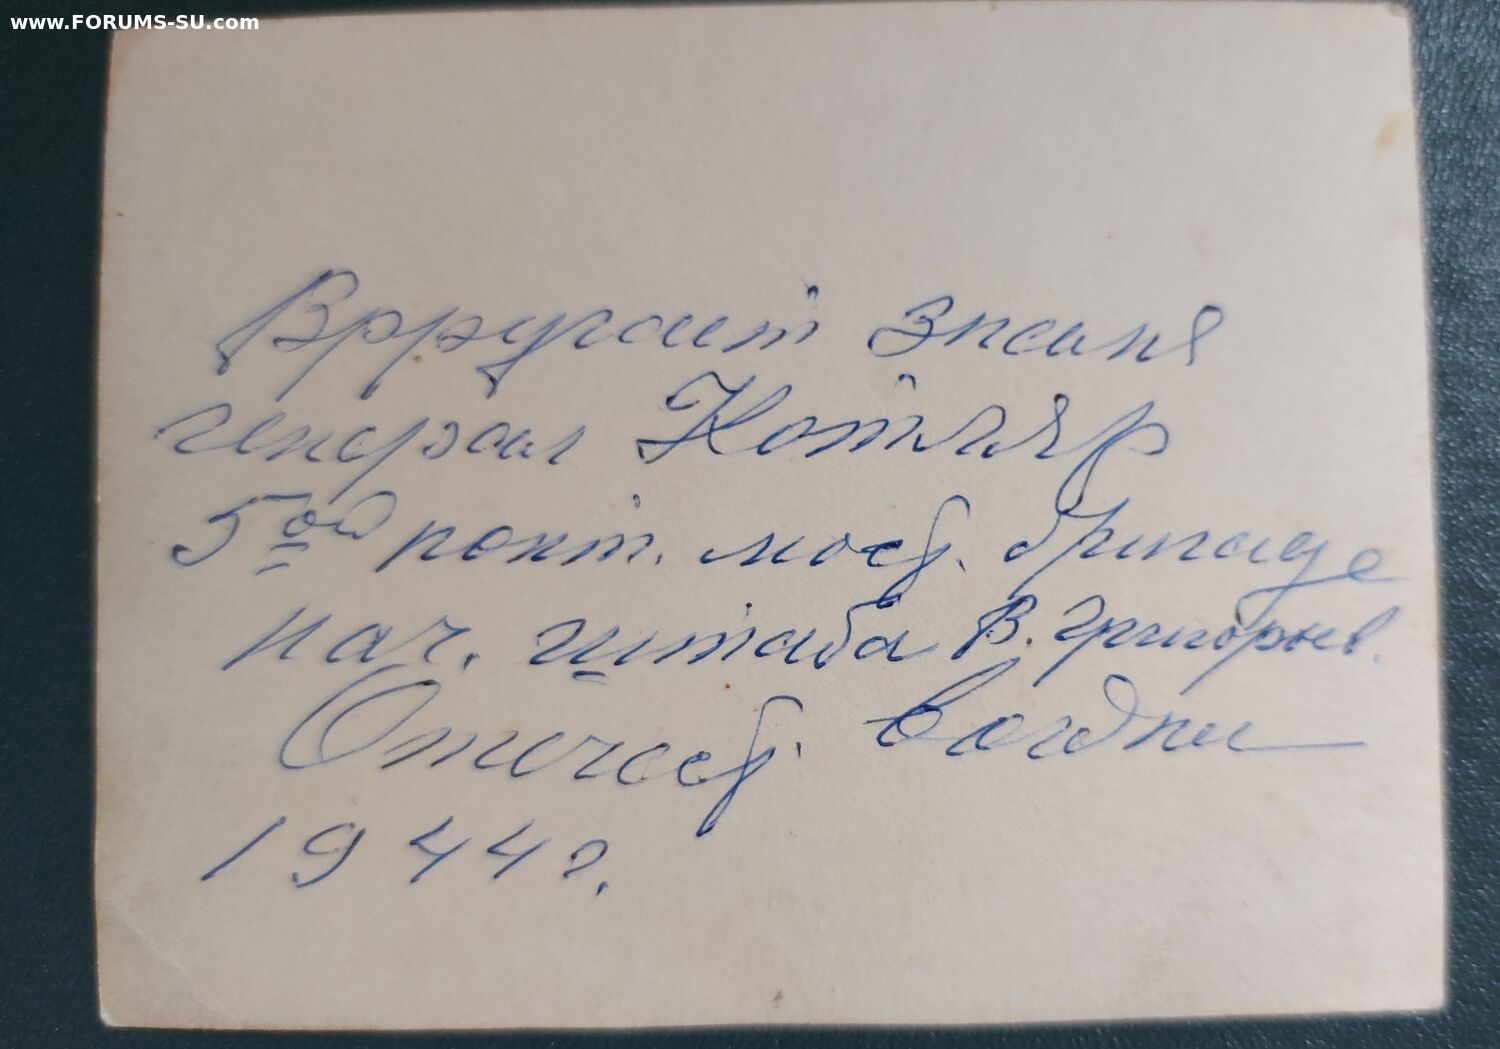 www.FORUMS-SU.com
Вручает знамя
генерал Котляр
5ой понт. мост. бригаде
нач. штаба В. Григорьев.
Отечест. войны
1944 г.